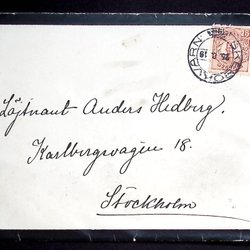 Löjtnant Anders Hedberg.
Karlbergsvägen 18.
Stockholm